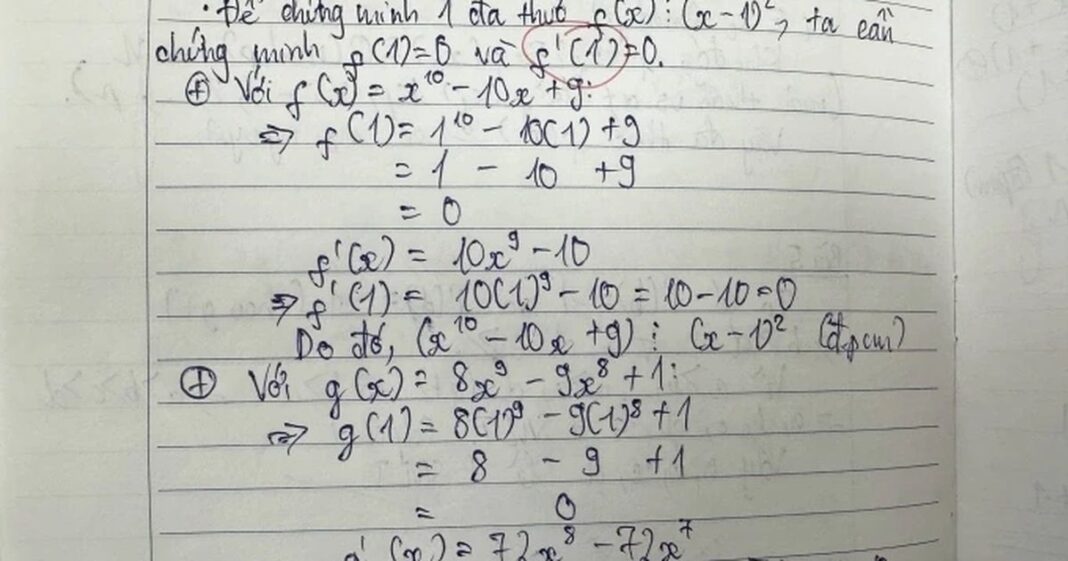 . Để chứng minh 1 đa thức f(x) ⋮ (x-1)², ta cần
chứng minh f(1)=0 và f'(1)=0.
⊕ Với f(x) = x¹⁰ - 10x + 9:
=> f(1) = 1¹⁰ - 10(1) + 9
= 1 - 10 + 9
= 0
f'(x) = 10x⁹ - 10
=> f'(1) = 10(1)⁹ - 10 = 10 - 10 = 0
Do đó, (x¹⁰ - 10x + 9) ⋮ (x-1)² (đpcm)
⊕ Với g(x) = 8x⁹ - 9x⁸ + 1:
=> g(1) = 8(1)⁹ - 9(1)⁸ + 1
= 8 - 9 + 1
= 0
g'(x) = 72x⁸ - 72x⁷